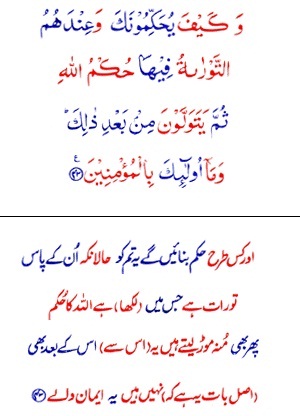 وَ كَيْفَ يُحَكِّمُوْنَكَ وَعِنْدَهُمُ
التَّوْرٰىةُ فِيْهَا حُكْمُ اللّٰهِ
ثُمَّ يَتَوَلَّوْنَ مِنْۢ بَعْدِ ذٰلِكَ ؕ
وَمَاۤ اُولٰٓئِكَ بِالْمُؤْمِنِيْنَ ﴿۴۳﴾ ع
اور کس طرح حکم بنائیں گے یہ تم کو حالانکہ اُن کے پاس
تورات ہے جس میں (لکھا) ہے اللہ کا حُکم
پھر بھی مُنہ موڑ لیتے ہیں یہ (اس سے) اس کے بعد بھی
(اصل بات یہ ہے کہ) نہیں ہیں یہ ایمان والے ﴿۴۳﴾